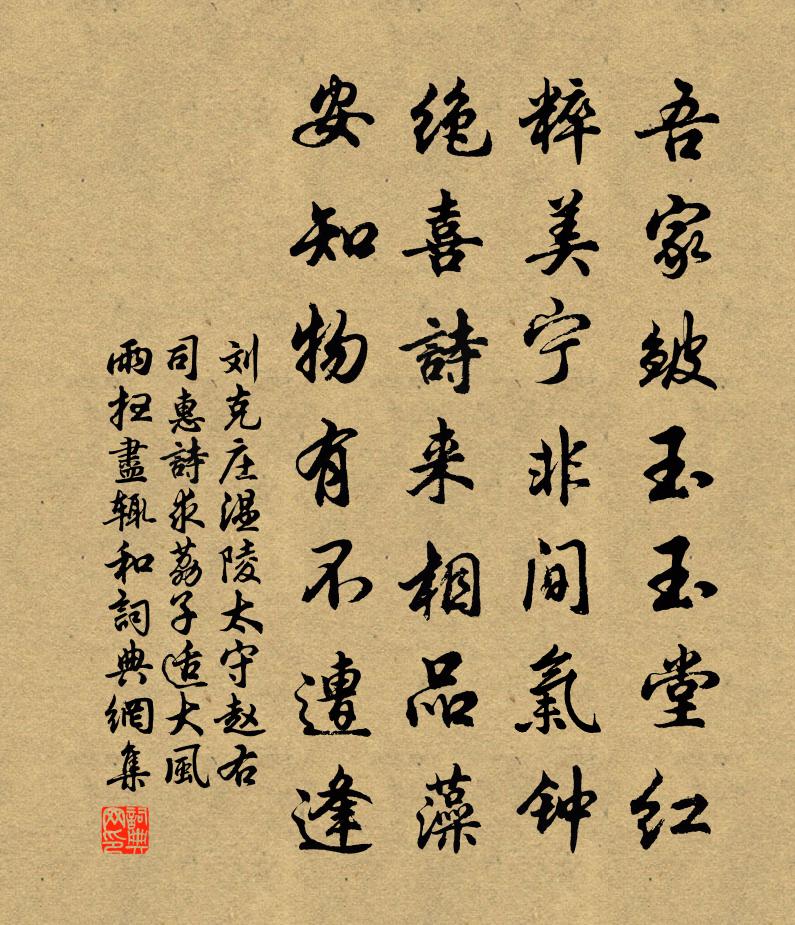 吾家皱玉玉堂红
粹美宁非间氣钟
绝喜詩来相品藻
安知物有不遭逢
刘克庄温陵太守赵右
司惠詩求荔子适大風
雨扫盡辄和詞典網集
詞典网印